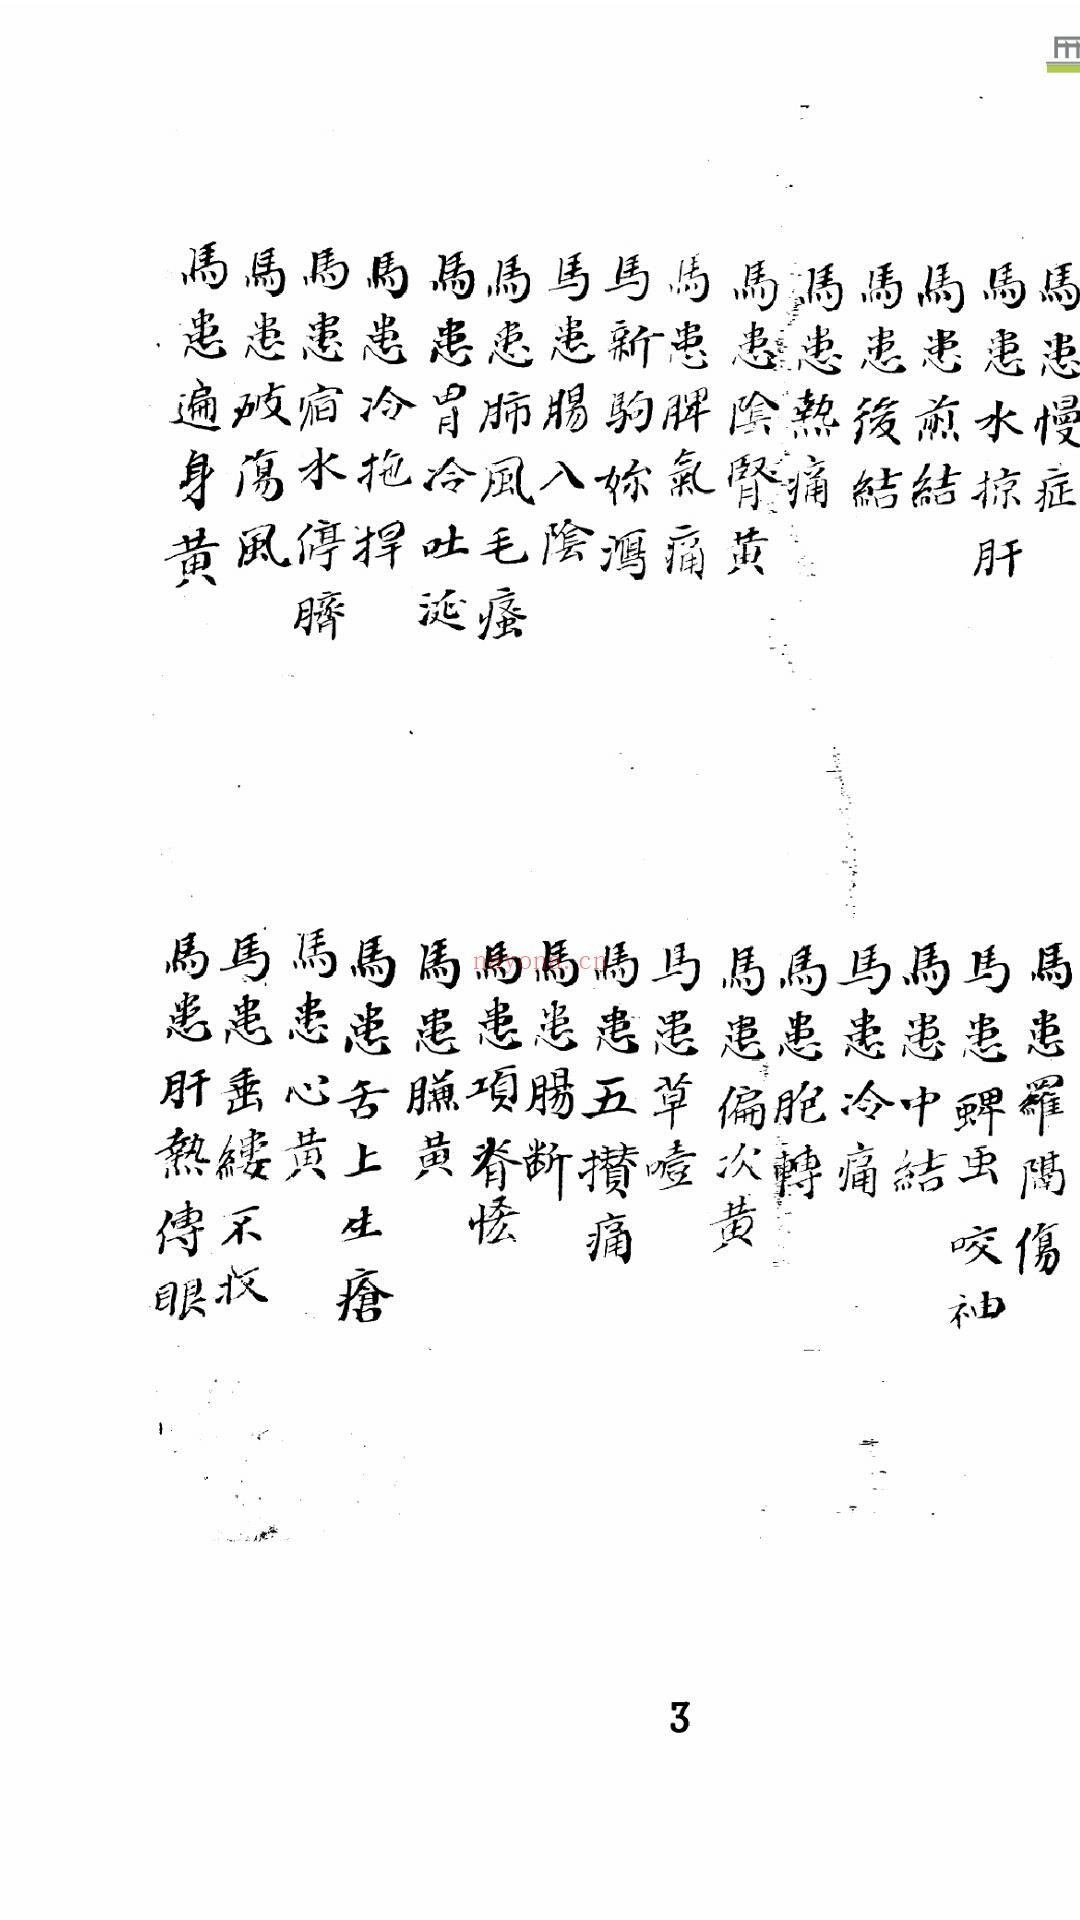 馬患慢症
馬患水掠肝
馬患煎結
馬患後結
馬患熱痛
馬患陰腎黃
馬患脾氣痛
馬新駒妳瀉
馬患腸入陰
馬患肺風毛瘙
馬患胃冷吐涎
馬患冷拖捍
馬患宿水停臍
馬患破傷風
馬患遍身黃
馬患羅膈傷
馬患蜱虫咬袖
馬患中結
馬患冷痛
馬患胞轉
馬患偏次黃
馬患草噎
馬患五攢痛
馬患腸断
馬患項脊恡
馬患膁黃
馬患舌上生瘡
馬患心黃
馬患垂縷不收
馬患肝熱傳眼
nayona.cn
3